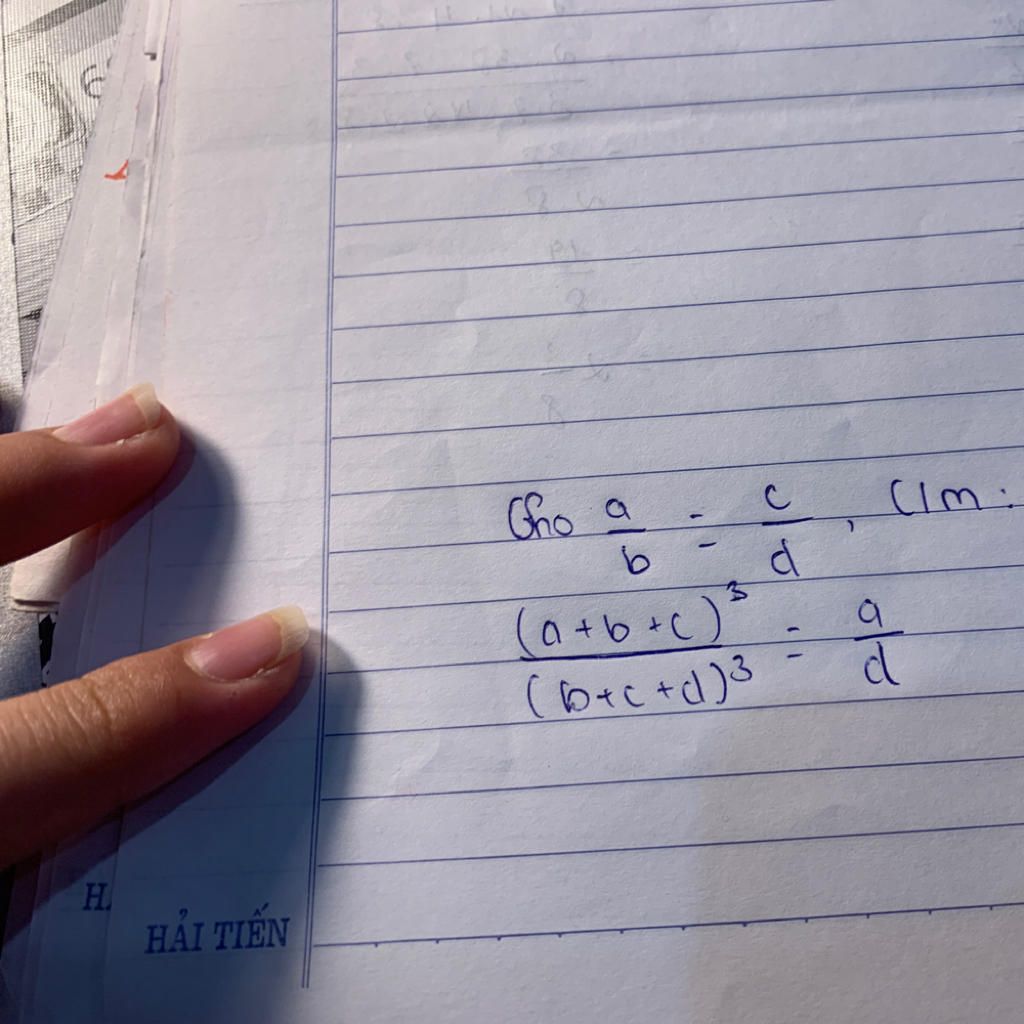 Cho a/b = c/d, C/m:
(a+b+c)³/(b+c+d)³ = a/d
HẢI TIẾN